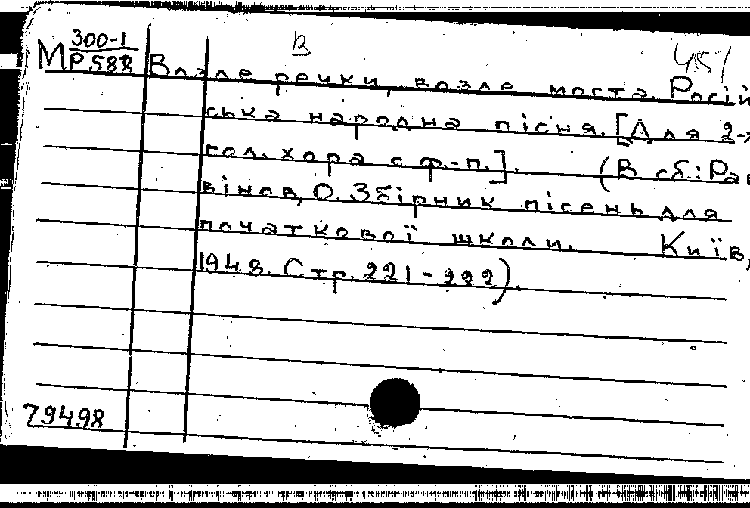 В 451
М 300-1
Р 588 Возле речки, возле моста. Росій
ська народна пісня. [Для 2-х
гол. хора с ф.-п.]. (В сб.: Рав
вінов, О. Збірник пісень для
початкової школи. Київ,
1948. Стр. 221-222).
79498